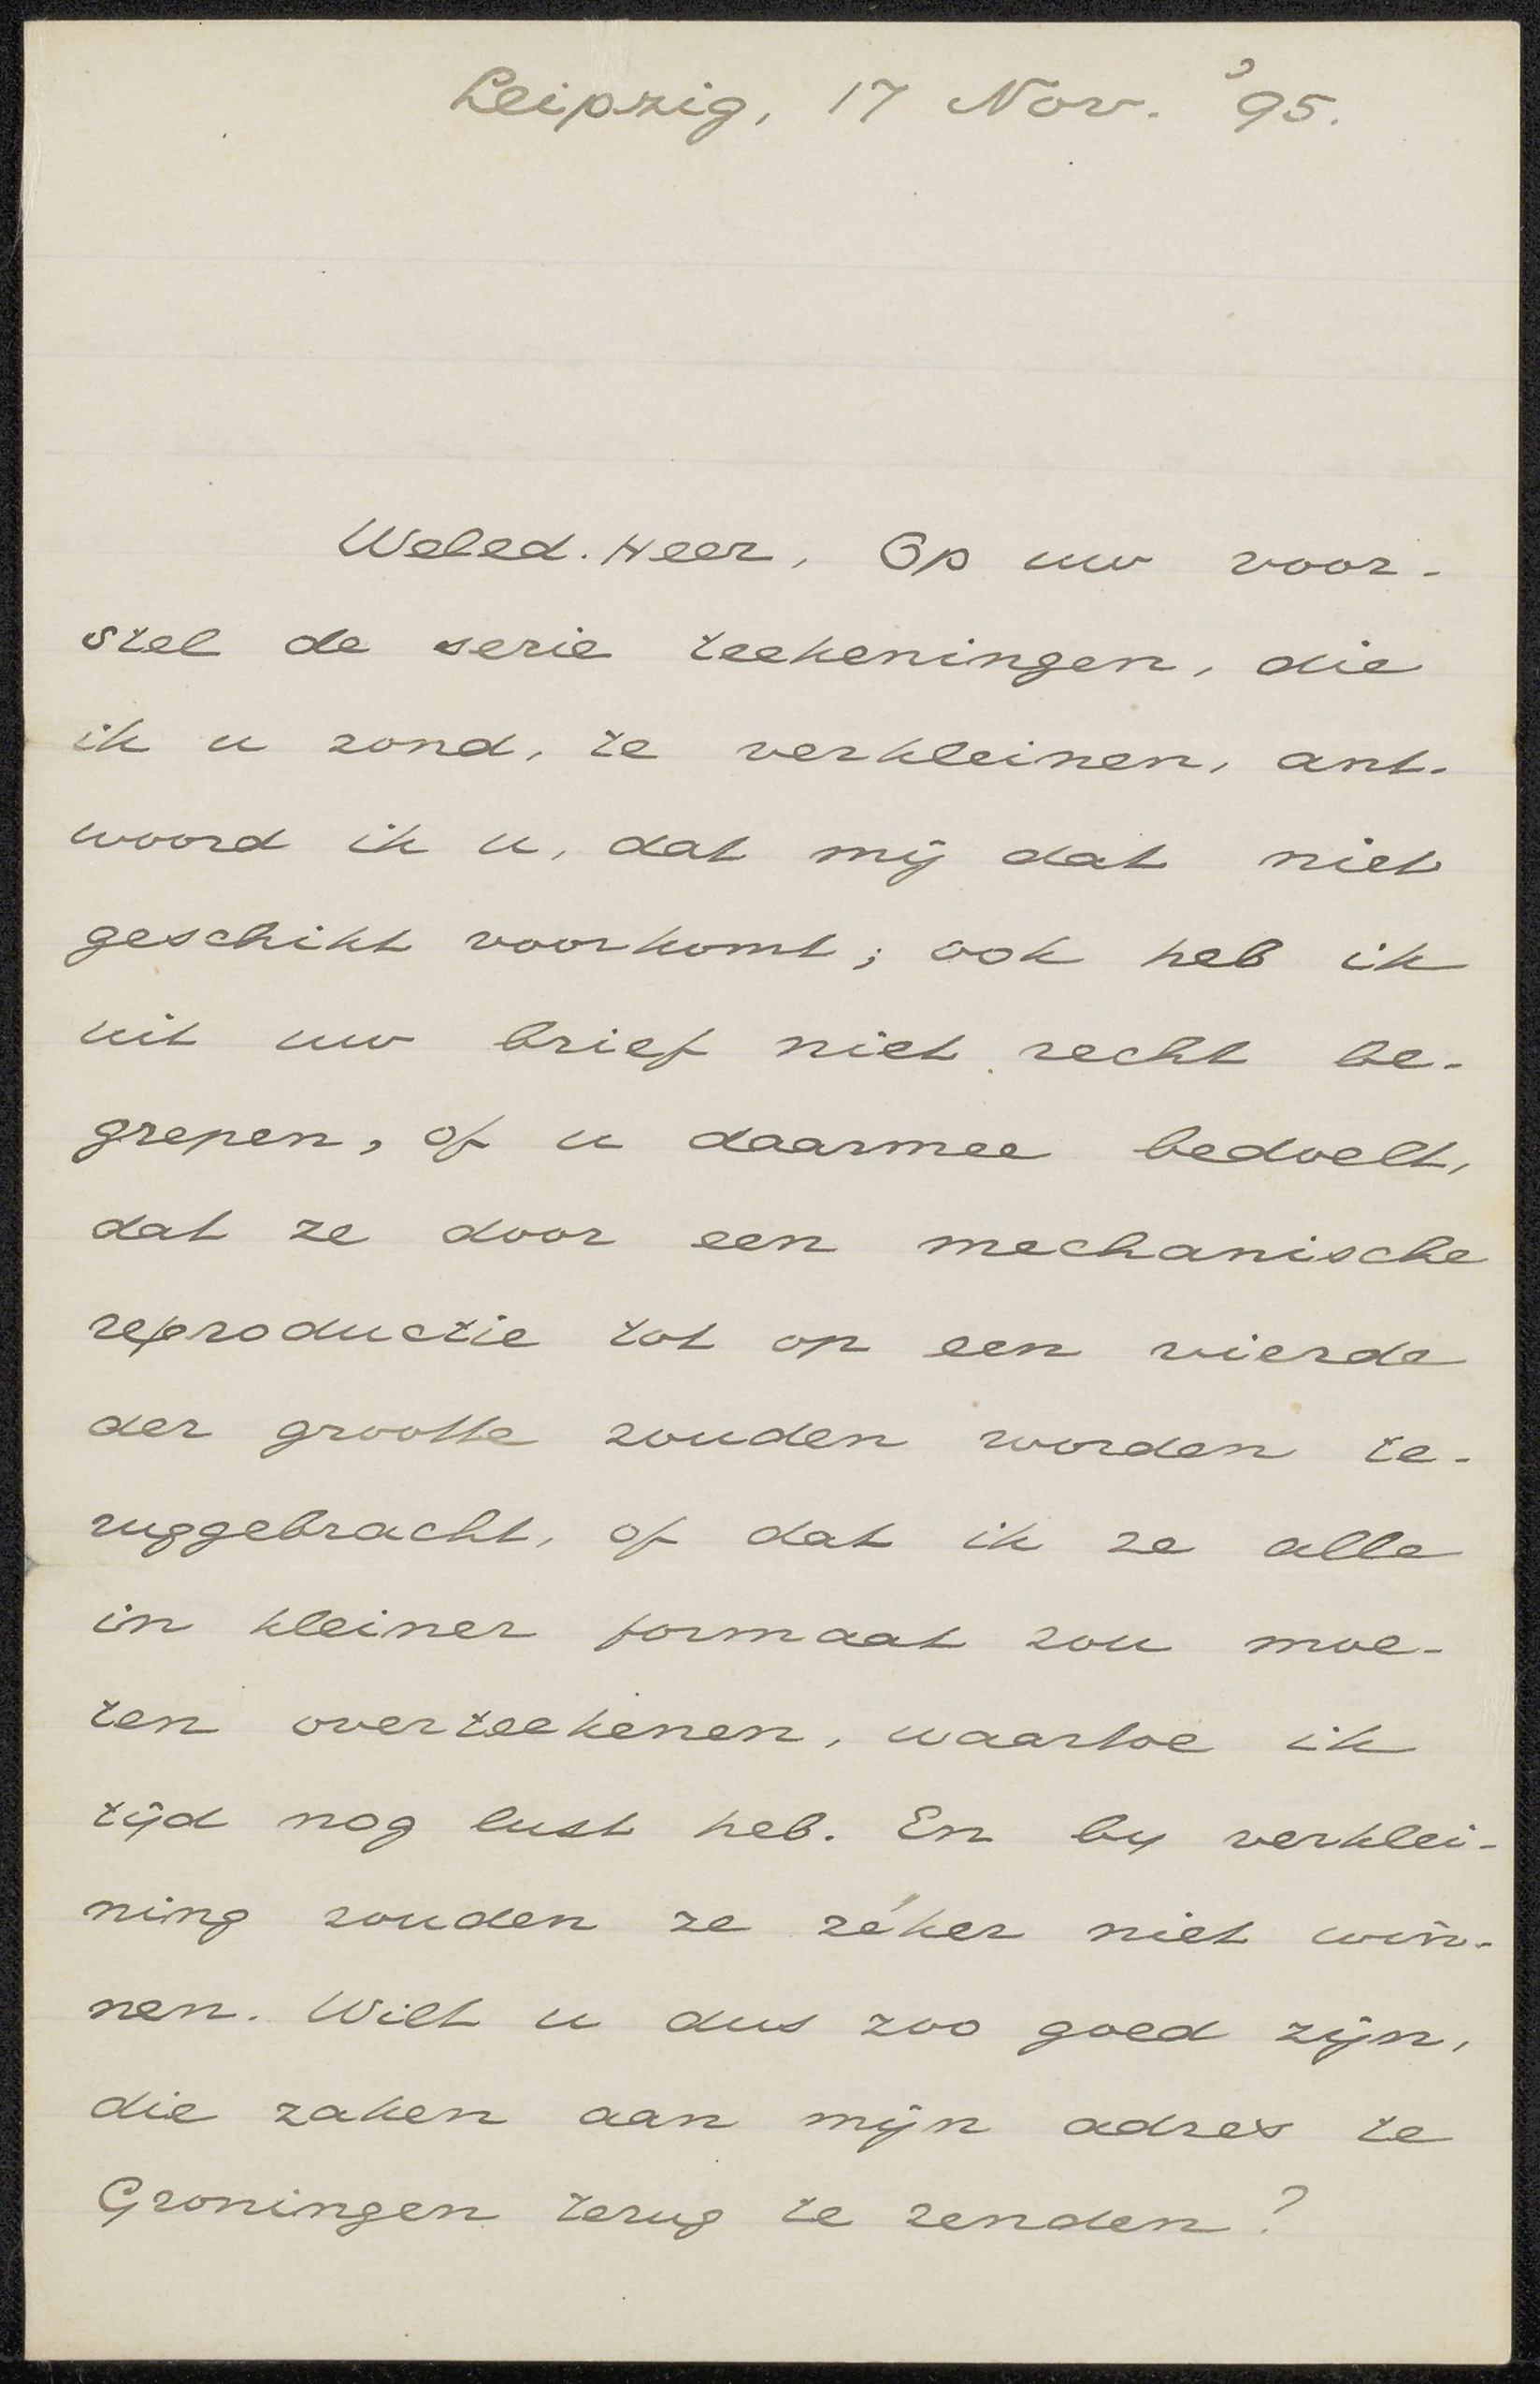 Leipzig, 17 Nov. '95.
Weled. Heer, Op uw voor-
stel de serie teekeningen, die
ik u zond, te verkleinen, ant-
woord ik u, dat mij dat niet
geschikt voorkomt; ook heb ik
uit uw brief niet recht be-
grepen, of u daarmee bedoelt,
dat ze door een mechanische
reproductie tot op een vierde
der grootte zouden worden te-
ruggebracht, of dat ik ze alle
in kleiner formaat zou moe-
ten overteekenen, waartoe ik
tijd nog lust heb. En by verklei-
ning zouden ze zéker niet win-
nen. Wilt u dus zoo goed zijn,
die zaken aan mijn adres te
Groningen terug te zenden?